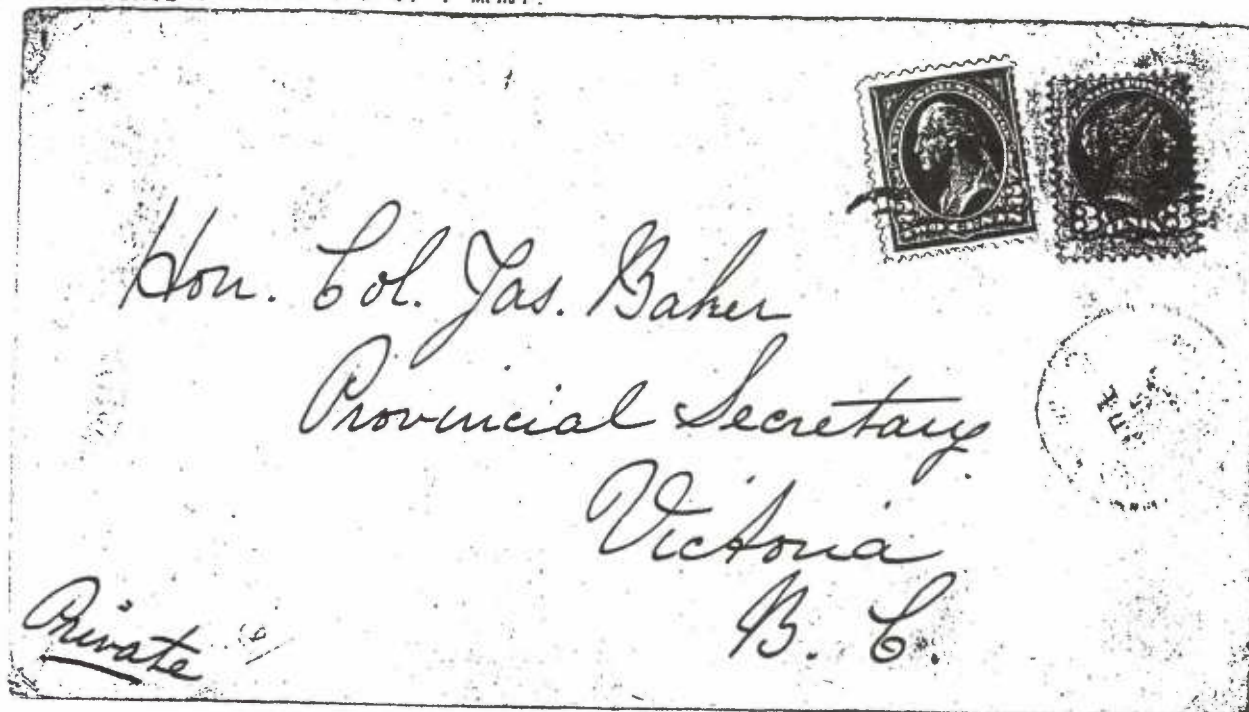 Hon. Col. Jas. Baker
Provincial Secretary.
Victoria
B. C.
Private